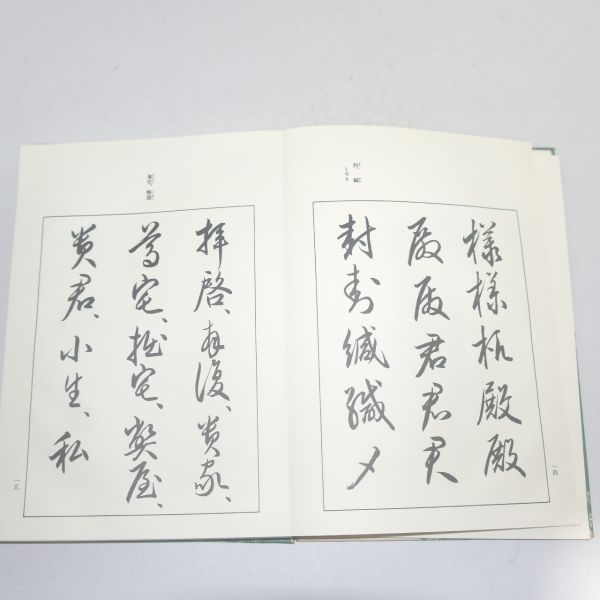 様様様殿殿
殿殿君君君
封封緘緘〆
一四
拝啓、拝復、貴家、
尊宅、拙宅、弊屋、
貴君、小生、私
一五